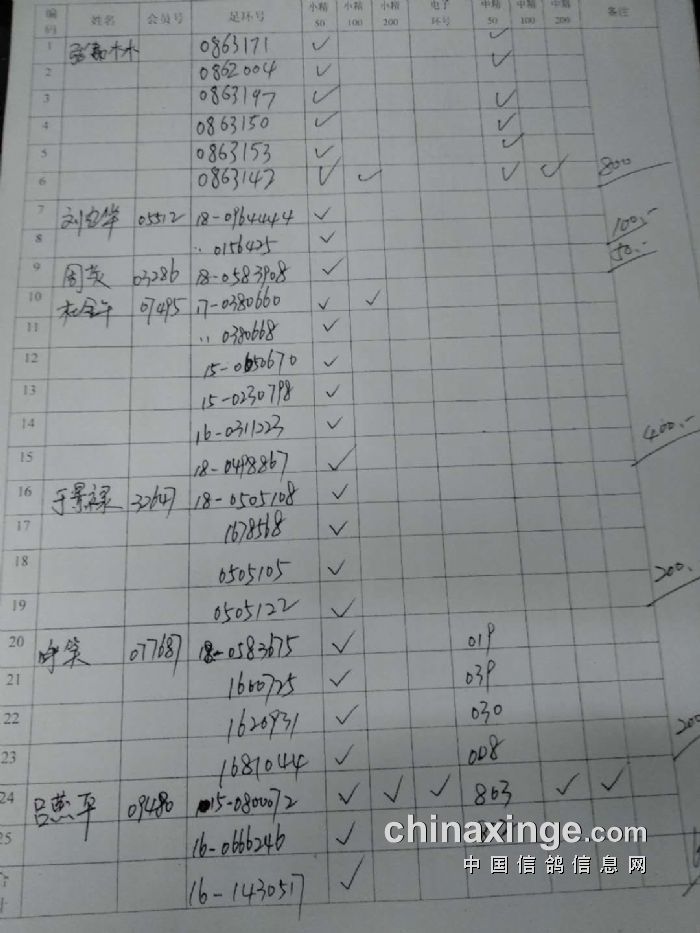 编码 姓名 会员号 足环号 小精50 小精100 小精200 电子环号 中精50 中精100 中精200 备注
1 0863171 ✓ ✓
2 0862004 ✓ ✓
3 0863197 ✓ ✓
4 0863150 ✓ ✓
5 0863153 ✓ ✓
6 0863142 ✓ ✓ ✓ ✓ 800
7 05512 18-0964444 ✓
8 〃 0156425 ✓ 100.-
9 周英 03286 18-0583908 ✓ 50.-
10 杜金午 07495 17-0380660 ✓ ✓
11 〃 0380668 ✓
12 ✓
13 15-0230798 ✓
14 16-0311223 ✓
15 18-0498867 ✓ 400.-
16 于景禄 32647 18-0505108 ✓
17 1678568 ✓
18 0505105 ✓
19 0505122 ✓ 200.
20 077687 18-0583675 ✓ 019
21 1600725 ✓ 039
22 1620931 ✓ 030
23 1681044 ✓ 008 200
24 吕燕平 09480 15-0800072 ✓ ✓ ✓ 863 ✓ ✓
25 16-0666246 ✓
合计 16-1430517 ✓
chinaxinge.com
中国信鸽信息网